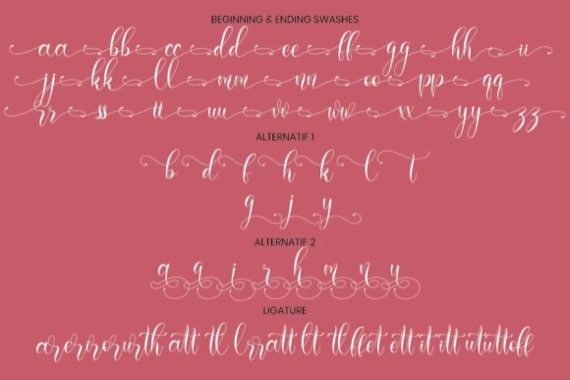 BEGINNING & ENDING SWASHES
aa bb cc dd ee ff gg hh ii
jj kk ll mm nn oo pp qq
rr ss tt uu vv ww xx yy zz
ALTERNATIF 1
b d f h k l t
g j y
ALTERNATIF 2
a q i r h m n y
LIGATURE
ar er ir or ur th att tl